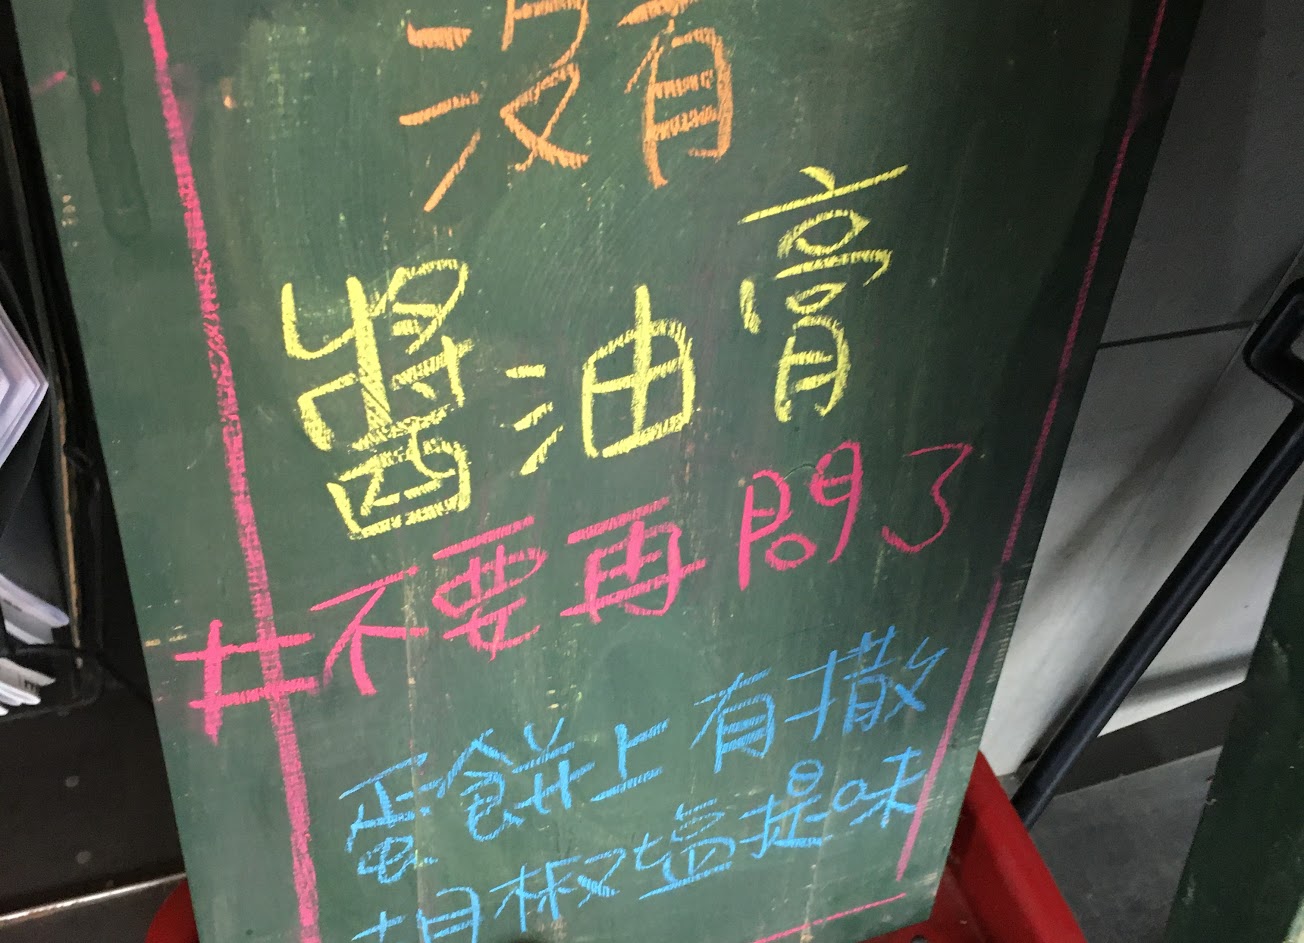 沒有
醬油膏
#不要再問了
蛋餅上有撒
胡椒塩提味